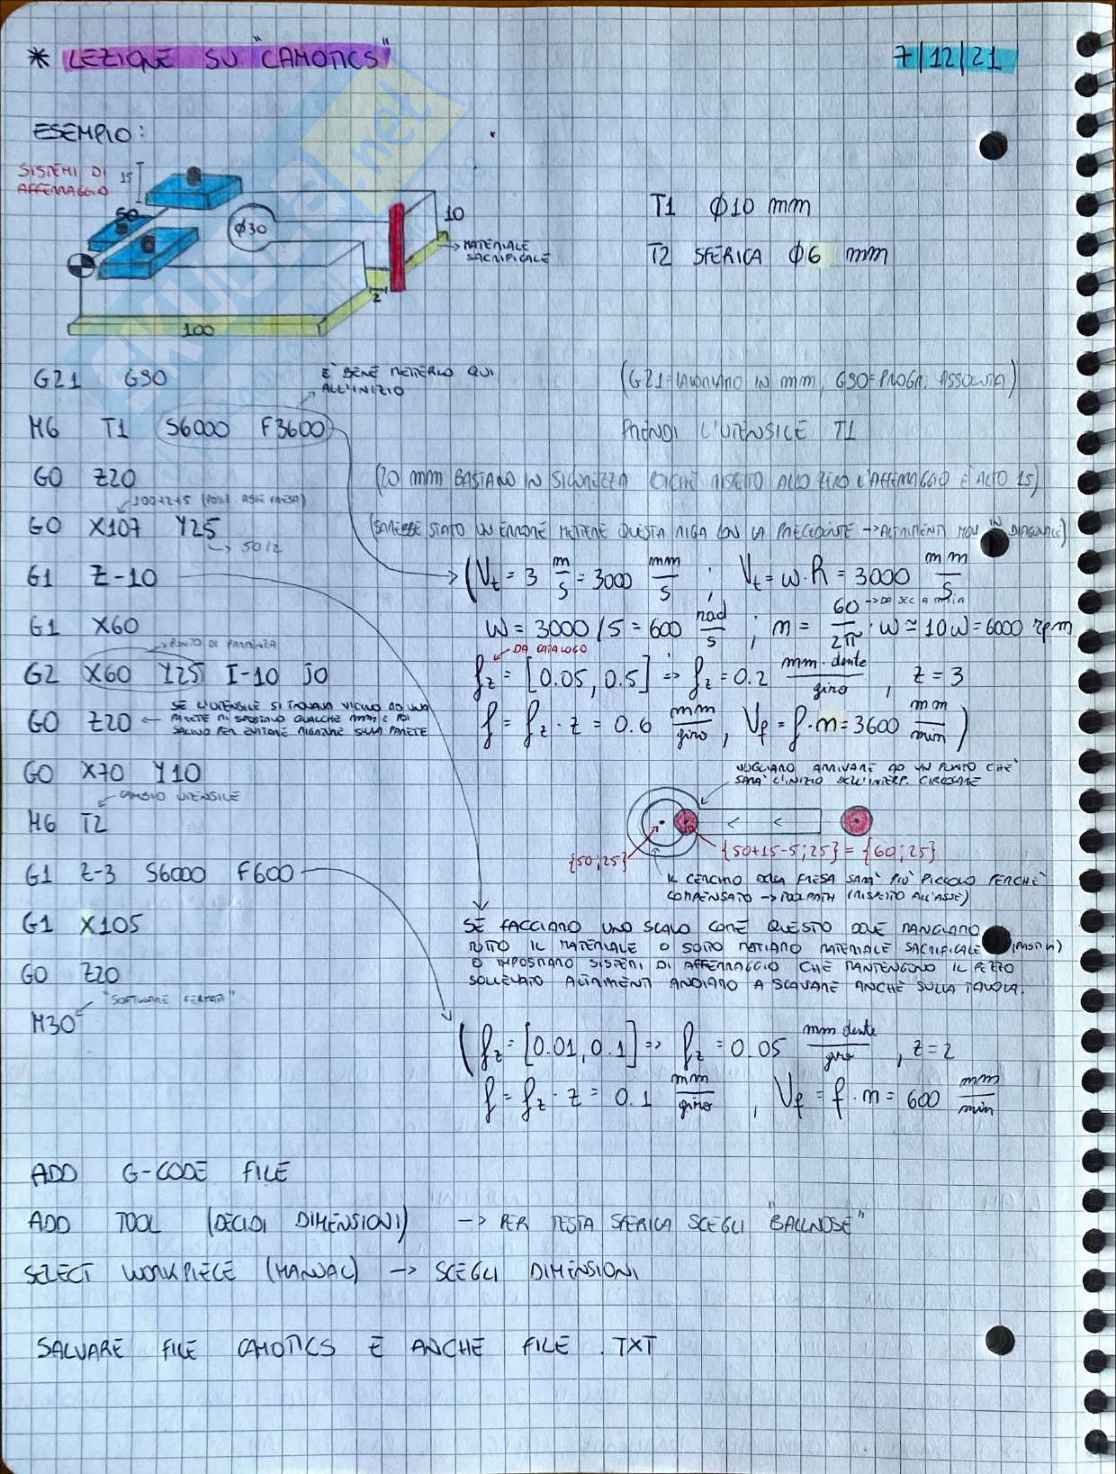 * LEZIONE SU "CAMOTICS"
7/12/21
ESEMPIO:
SISTEMI DI
AFFERRAGGIO
15
50
Φ30
10
MATERIALE
SACRIFICALE
2
100
T1 Φ10 mm
T2 SFERICA Φ6 mm
skuola.net
G21 G90
È BENE METTERLO QUI
ALL'INIZIO
(G21=LAVORIAMO IN mm, G90=PROGR. ASSOLUTA)
M6 T1 S6000 F3600
PRENDI L'UTENSILE T1
G0 Z20
(20 mm BASTANO IN SICUREZZA POICHÉ RISPETTO ALLO ZERO L'AFFERRAGGIO È ALTO 15)
100+2+5 (POS. ASSE FRESA)
G0 X107 Y25
50/2
(SAREBBE STATO UN ERRORE METTERE QUESTA RIGA CON LA PRECEDENTE → ALTRIMENTI MOV IN DIAGONALE)
G1 Z-10
(Vt = 3 m/s = 3000 mm/s ; Vt = ω·R = 3000 mm/s
G1 X60
ω = 3000/5 = 600 rad/s ; n = 60/2π · ω ≃ 10ω = 6000 rpm
→ DA SEC A MIN
PUNTO DI PARTENZA
DA CATALOGO
G2 X60 Y25 I-10 J0
fz = [0.05, 0.5] => fz = 0.2 mm·dente/giro , z = 3
G0 Z20
SE L'UTENSILE SI TROVAVA VICINO AD UNA
PARETE MI SPOSTAVO QUALCHE mm E POI
SALIVO PER EVITARE RIGATURE SULLA PARETE
f = fz · z = 0.6 mm/giro , Vf = f·n = 3600 mm/min )
G0 X70 Y10
VOGLIAMO ARRIVARE AD UN PUNTO CHE
SARÀ L'INIZIO DELL'INTERP. CIRCOLARE
CAMBIO UTENSILE
M6 T2
{50;25}
{50+15-5;25} = {60;25}
G1 Z-3 S6000 F600
IL CERCHIO DELLA FRESA SARÀ PIÙ PICCOLO PERCHÉ
COMPENSATO → TOOLPATH (RISPETTO ALL'ASSE)
G1 X105
SE FACCIAMO UNO SCALO COME QUESTO DOVE MANGIAMO
TUTTO IL MATERIALE O SOTTO METTIAMO MATERIALE SACRIFICALE
O IMPOSTIAMO SISTEMI DI AFFERRAGGIO CHE MANTENGONO IL PEZZO
SOLLEVATO ALTRIMENTI ANDIAMO A SCAVARE ANCHE SULLA TAVOLA.
G0 Z20
"SOFTWARE FERMATI"
M30
(fz = [0.01, 0.1] => fz = 0.05 mm dente/giro , z = 2
f = fz · z = 0.1 mm/giro , Vf = f·n = 600 mm/min
ADD G-CODE FILE
ADD TOOL (DECIDI DIMENSIONI) → PER TESTA SFERICA SCEGLI "BALLNOSE"
SELECT WORKPIECE (MANUAL) → SCEGLI DIMENSIONI
SALVARE FILE CAMOTICS E ANCHE FILE .TXT